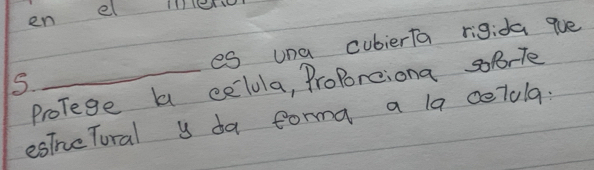 en el
5. ________ es una cubierta rigida que
Protege la célula, Proporciona soporte
estructural y da forma a la celula.